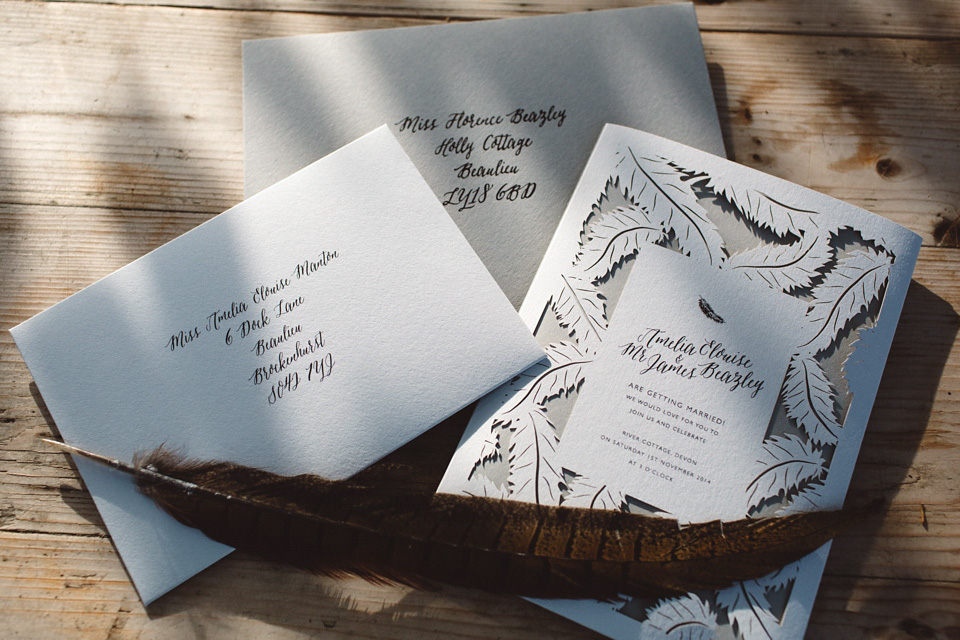 Miss Florence Beazley
Holly Cottage
Beaulieu
LY18 6BD
Miss Amelia Elouise Manton
6 Dock Lane
Beaulieu
Brockenhurst
SO4J 7YJ
Amelia Elouise
&
Mr James Beazley
ARE GETTING MARRIED!
WE WOULD LOVE FOR YOU TO
JOIN US AND CELEBRATE
RIVER COTTAGE, DEVON
ON SATURDAY 1ST NOVEMBER 2014
AT 3 O'CLOCK